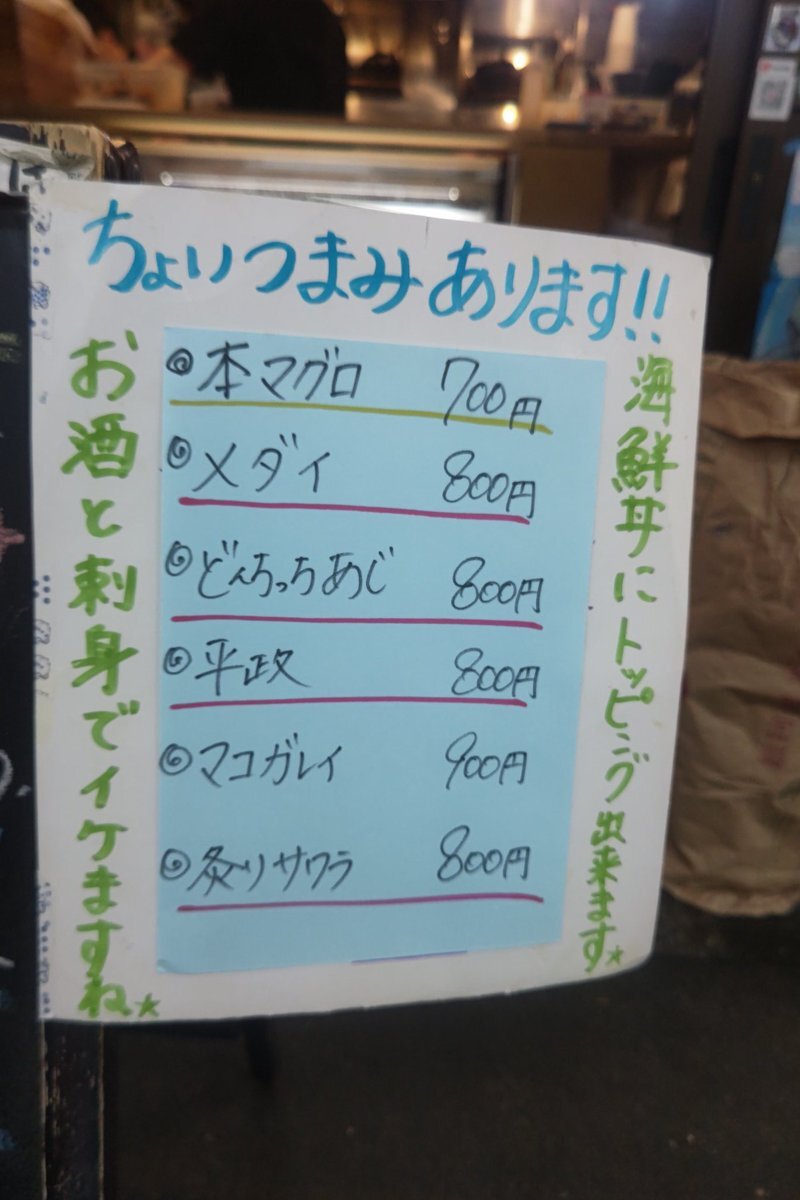 ちょいつまみあります!!
海鮮丼にトッピング出来ます☆
◎本マグロ 700円
◎メダイ 800円
◎どんちっちあじ 800円
◎平政 800円
◎マコガレイ 900円
◎炙りサワラ 800円
お酒と刺身でイケますね☆